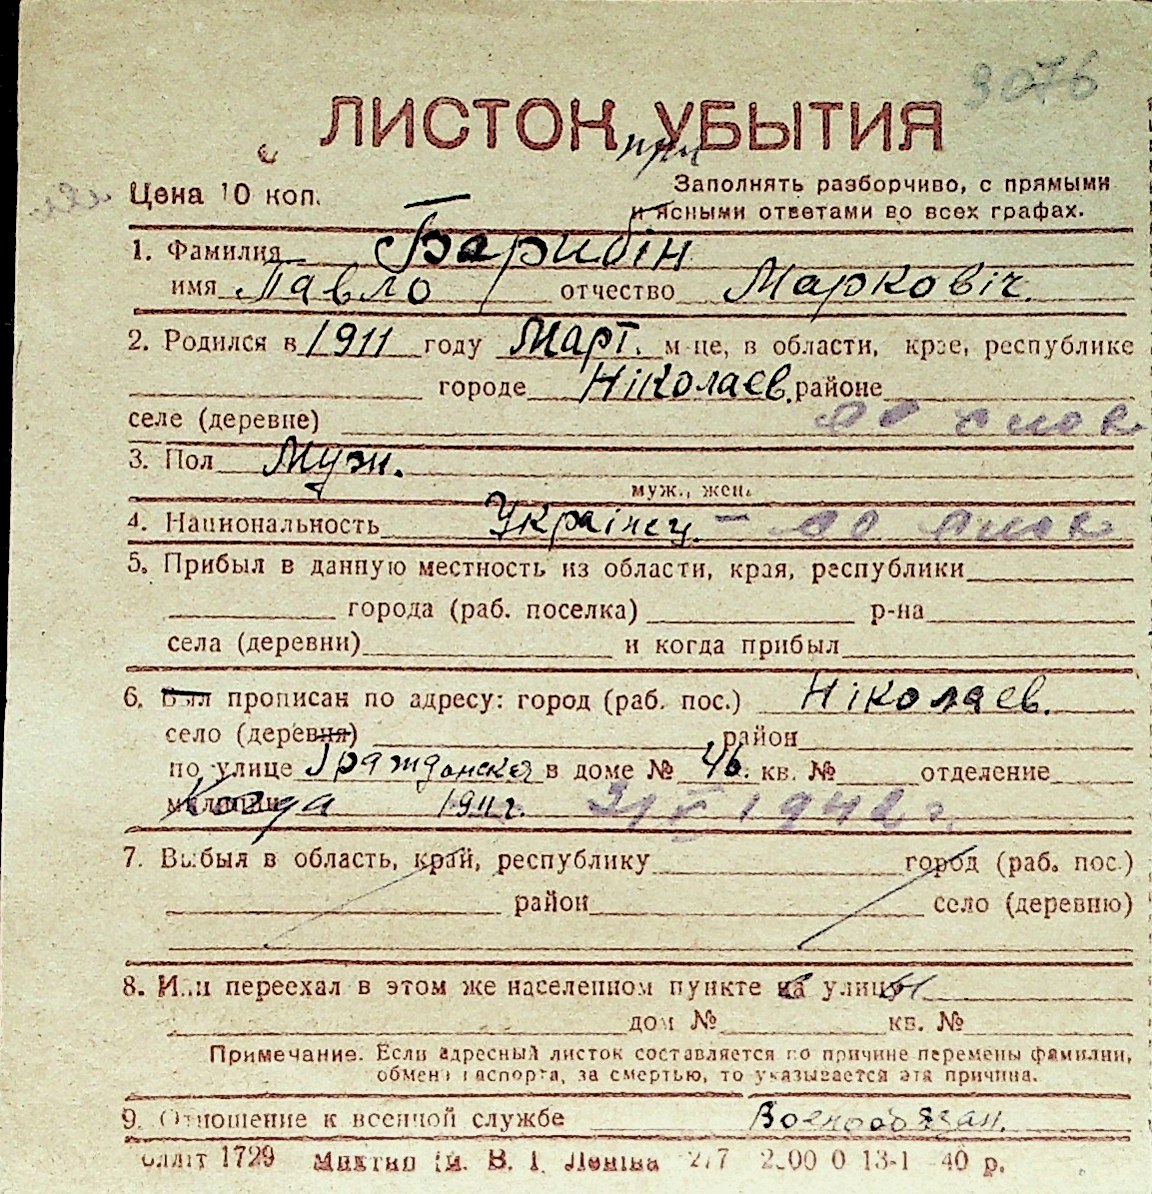 3076
ЛИСТОК УБЫТИЯ
при
Цена 10 коп.
Заполнять разборчиво, с прямыми
и ясными ответами во всех графах.
1. Фамилия Барибін
имя Павло отчество Маркович
2. Родился в 1911 году Март. м-це, в области, крае, республике
городе Ніколаев. районе
селе (деревне) со слов
3. Пол Муж.
муж., жен.
4. Национальность Украінец. - со слов
5. Прибыл в данную местность из области, края, республики
города (раб. поселка) р-на
села (деревни) и когда прибыл
6. Был прописан по адресу: город (раб. пос.) Ніколаев.
село (деревня) район
по улице Гражданская в доме № 46. кв. № отделение
милиции Когда 1941г. 1942 г.
7. Выбыл в область, край, республику город (раб. пос.)
район село (деревню)
8. Или переехал в этом же населенном пункте на улицу
дом № кв. №
Примечание. Если адресный листок составляется по причине перемены фамилии,
обмена паспорта, за смертью, то указывается эта причина.
9. Отношение к военной службе Военнообязан.
1729 ім. В. І. Леніна 13-1 -40 р.